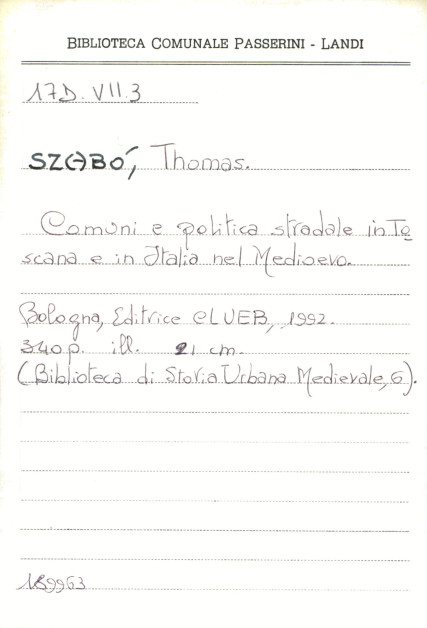 BIBLIOTECA COMUNALE PASSERINI - LANDI
17D. VII.3
SZABÓ, Thomas.
Comuni e politica stradale in To
scana e in Italia nel Medioevo.
Bologna, Editrice CLUEB, 1992.
340 p. ill. 21 cm.
(Biblioteca di Storia Urbana Medievale, 6).
189963